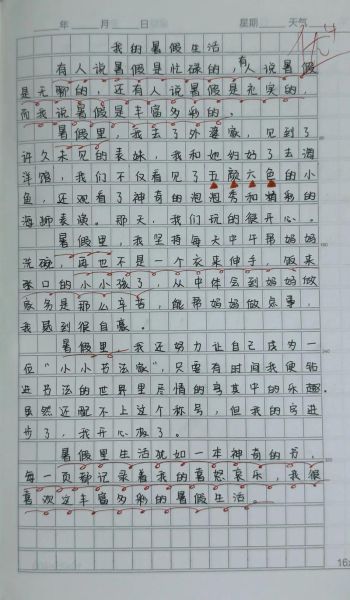 年 月 日 星期 天气
优+
我的暑假生活
有人说暑假是忙碌的,有人说暑假
是无聊的,还有人说暑假是充实的,
而我说暑假是丰富多彩的。
暑假里,我去了外婆家,见到了
许久未见的表妹,我和她约好了去海
洋馆,我们不仅看见了五颜六色的小
鱼,还观看了神奇的泡泡秀和精彩的
海狮表演。那天,我们玩的很开心。
暑假里,我坚持每天中午帮妈妈
洗碗,再也不是一个衣来伸手,饭来
张口的小小孩了,从中体会到妈妈做
家务是那么辛苦,能帮妈妈做点事,
我感到很自豪。
暑假里,我还努力让自己成为一
位“小小书法家”,只要有时间我便钻
进书法的世界里尽情的享其中的乐趣。
虽然还配不上这个称号,但我的字进
步了,我开心极了。
暑假里生活犹如一本神奇的书,
每一页都记录着我的喜怒哀乐,我很
喜欢这丰富多彩的暑假生活。